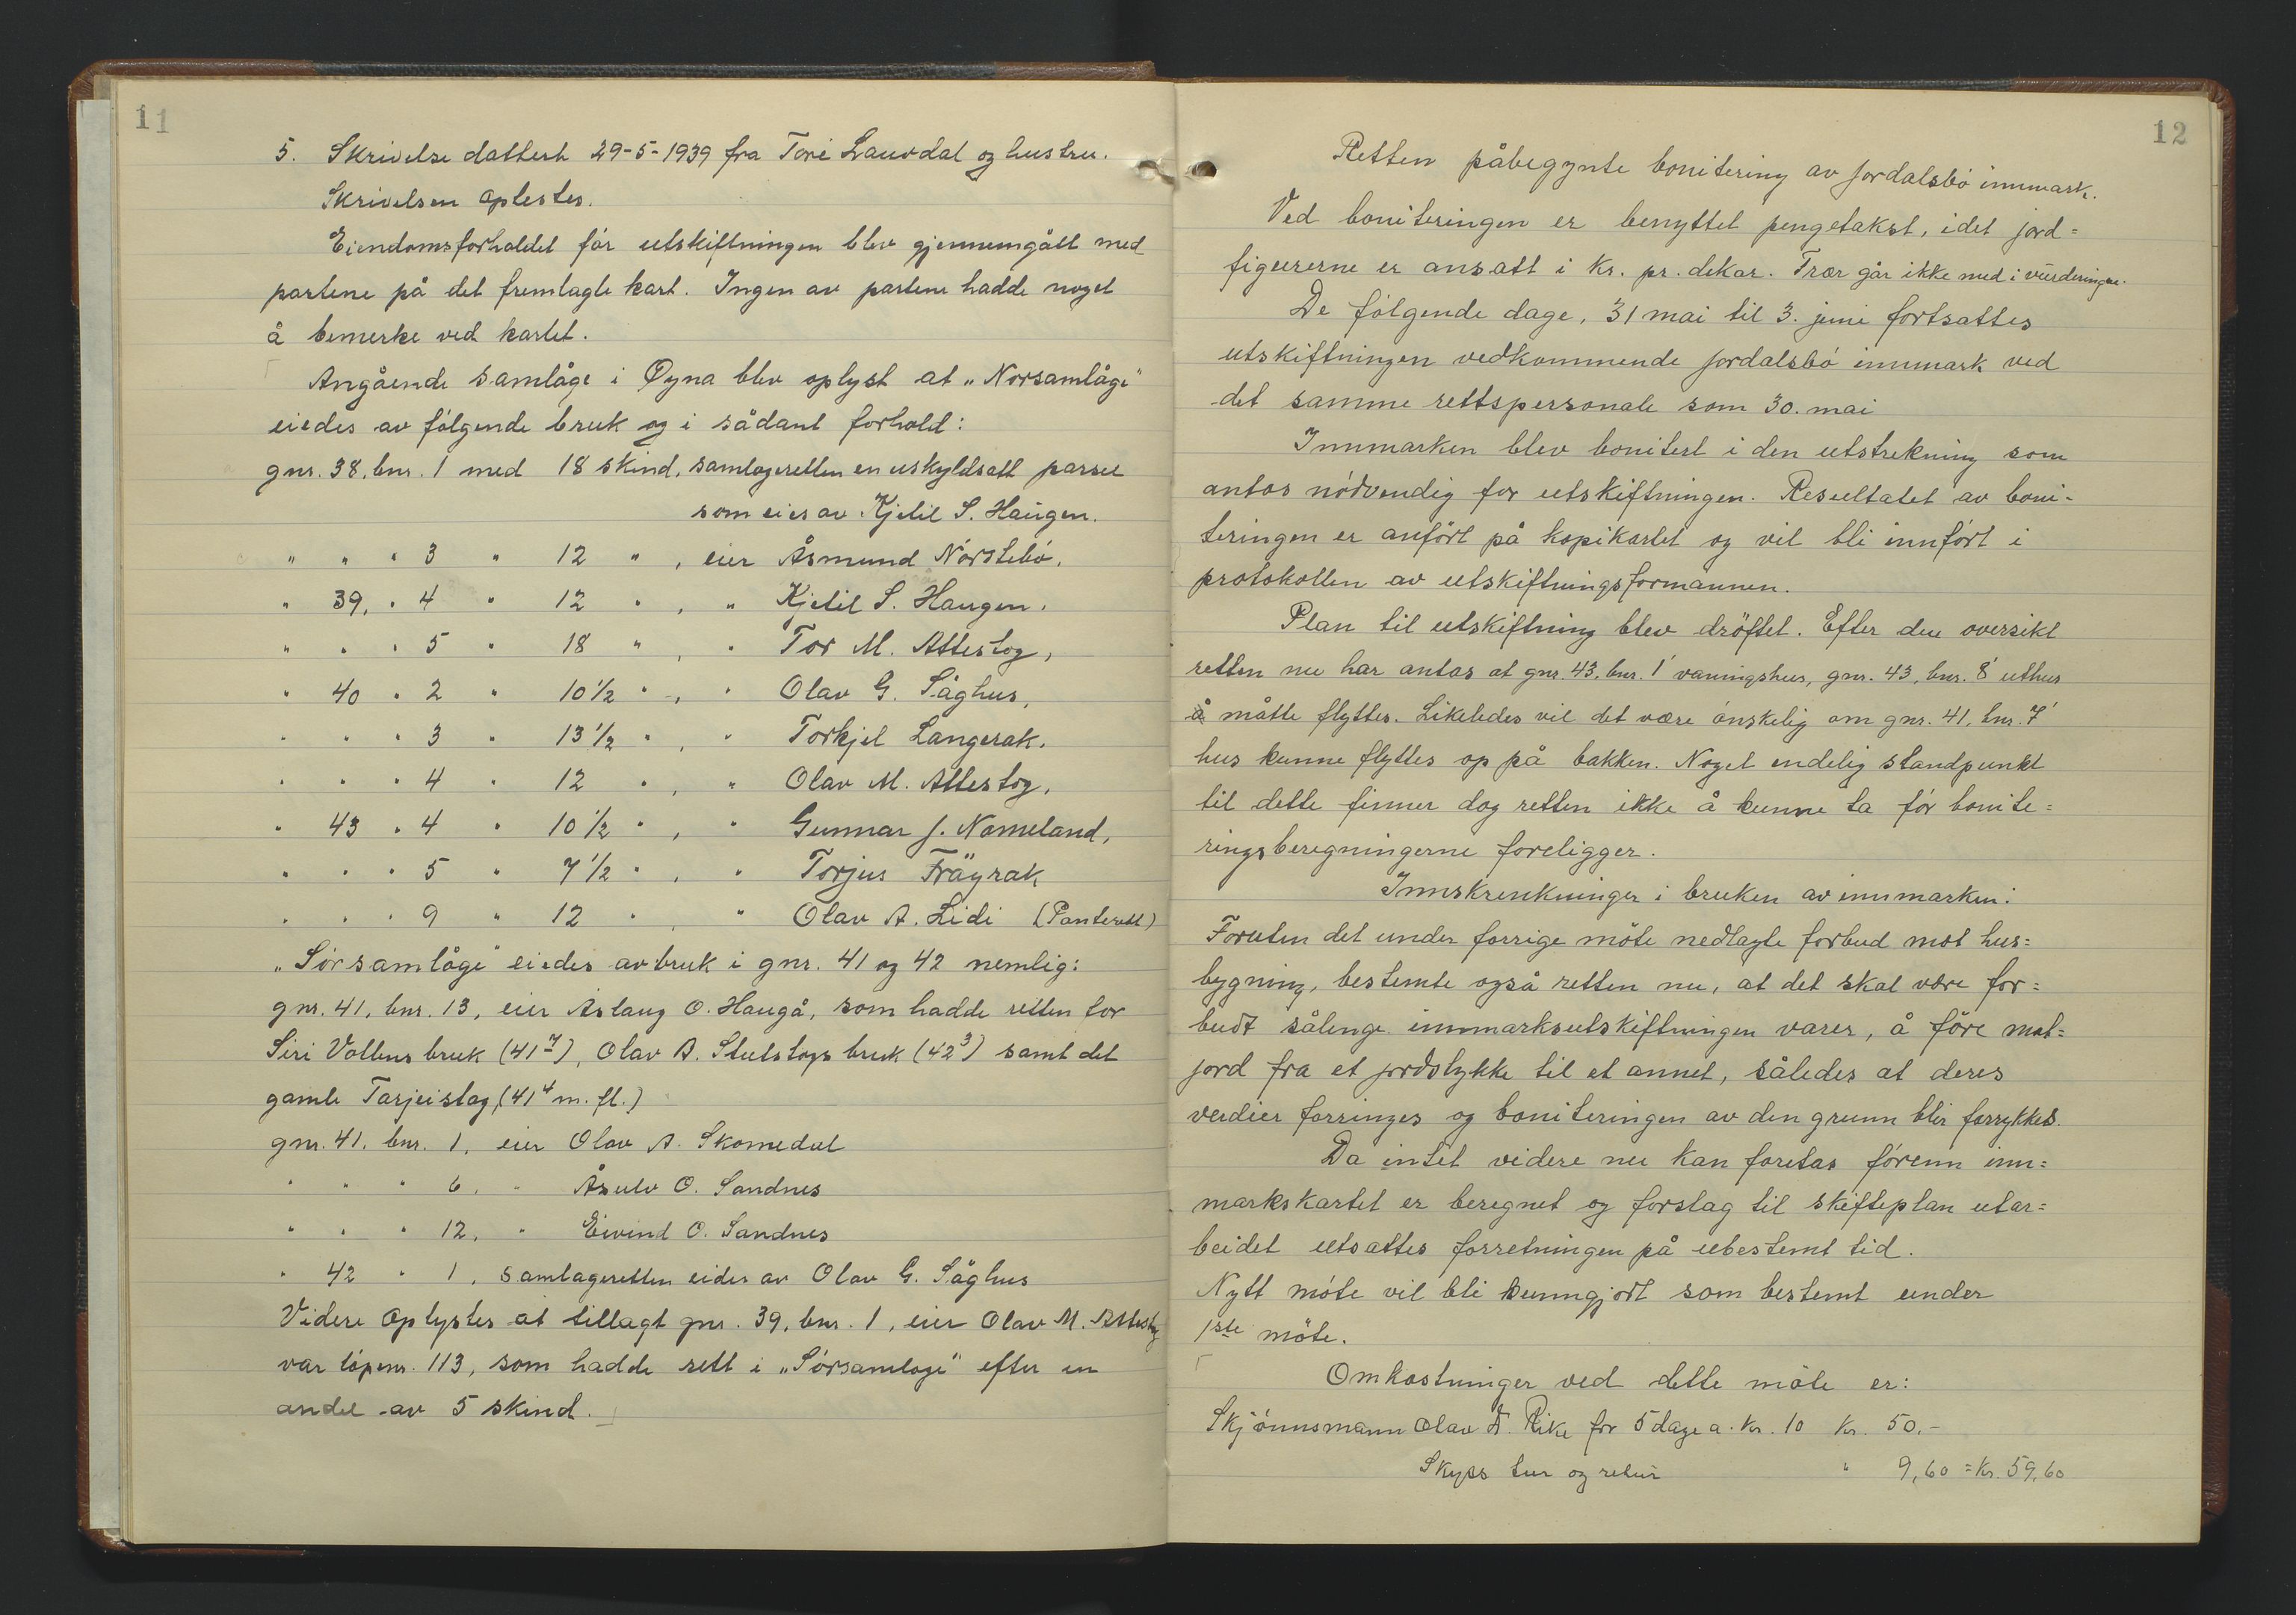 11
5. Skrivelse dattert 29-5-1939 fra Tore Lauvdal og hustru.
Skrivelsen oplestes.
Eiendomsforholdet før utskiftningen blev gjennemgått med
partene på det fremlagte kart. Ingen av partene hadde noget
å bemerke ved kartet.
Angående samløge i Øyna blev oplyst at „Norsamløge"
eiedes av følgende bruk og i sådant forhold:
gnr. 38, bnr. 1 med 18 skind, samløgeretten en uskyldsatt parsel
som eies av Kjetil S. Haugen.
" " " 3 " 12 " , eier Åsmund Nørstebø,
" 39, " 4 " 12 " , " Kjetil S. Haugen.
" " " 5 " 18 " , " Tor M. Attestog,
" 40 " 2 " 10 1/2 " , " Olav G. Såghus,
" " " 3 " 13 1/2 " , " Torkjel Langerak.
" " " 4 " 12 " , " Olav M. Attestog,
" 43 " 4 " 10 1/2 " , " Gunnar J. Nomeland,
" " " 5 " 7 1/2 " , " Torjus Fråyrak
" " " 9 " 12 " , " Olav A. Lidi (Panterett)
„Sørsamløge" eiedes av bruk i gnr. 41 og 42 nemlig:
gnr. 41, bnr. 13, eier Aslaug O. Haugå, som hadde retten for
Siri Vollens bruk (41 7), Olav A. Stutstogs bruk (42 3) samt det
gamle Tarjeistog, (41 4 m. fl.)
gnr. 41, bnr. 1, eier Olav A. Skomedal
" " " 6, " Åsulv O. Sandnes
" " " 12, " Eivind O. Sandnes
" 42 " 1, samløgeretten eides av Olav G. Såghus
Videre oplystes at tillagt gnr. 39, bnr. 1, eier Olav M. Attestog
var løpenr. 113, som hadde rett i „Sørsamløge" efter en
andel av 5 skind.
12
Retten påbegynte bonitering av Jordalsbø innmark.
Ved boniteringen er benyttet pengetakst, idet jord=
figurerne er ansatt i Kr. pr. dekar. Trær går ikke med i vurderingen.
De følgende dage, 31 mai til 3. juni fortsattes
utskiftningen vedkommende Jordalsbø innmark ved
det samme rettspersonale som 30. mai
Innmarken blev bonitert i den utstrekning som
antas nødvendig for utskiftningen. Resultatet av boni-
teringen er anført på kopikartet og vil bli innført i
protokollen av utskiftningsformannen.
Plan til utskiftning blev drøftet. Efter den oversikt
retten nu har antas at gnr. 43, bnr. 1' vaningshus, gnr. 43, bnr. 8' uthus
å måtte flyttes. Likeledes vil det være ønskelig om gnr. 41, bnr. 7'
hus kunne flyttes op på bakken. Noget endelig standpunkt
til dette finner dog retten ikke å kunne ta før bonite=
ringsberegningerne foreligger.
Innskrenkninger i bruken av innmarken:
Foruten det under forrige møte nedlagte forbud mot hus=
bygning, bestemte også retten nu, at det skal være for=
budt sålenge innmarksutskiftningen varer, å føre mat=
jord fra et jordstykke til et annet, således at deres
verdier forringes og boniteringen av den grunn blir forrykket.
Da intet videre nu kan foretas førenn inn=
markskartet er beregnet og forslag til skifteplan utar=
beidet utsattes forretningen på ubestemt tid.
Nytt møte vil bli kunngjort som bestemt under
1ste møte.
Omkostninger ved dette møte er:
Skjønnsmann Olav D. Rike for 5 dage a. kr. 10 kr. 50.-
Skyss tur og retur " 9,60 = kr. 59,60